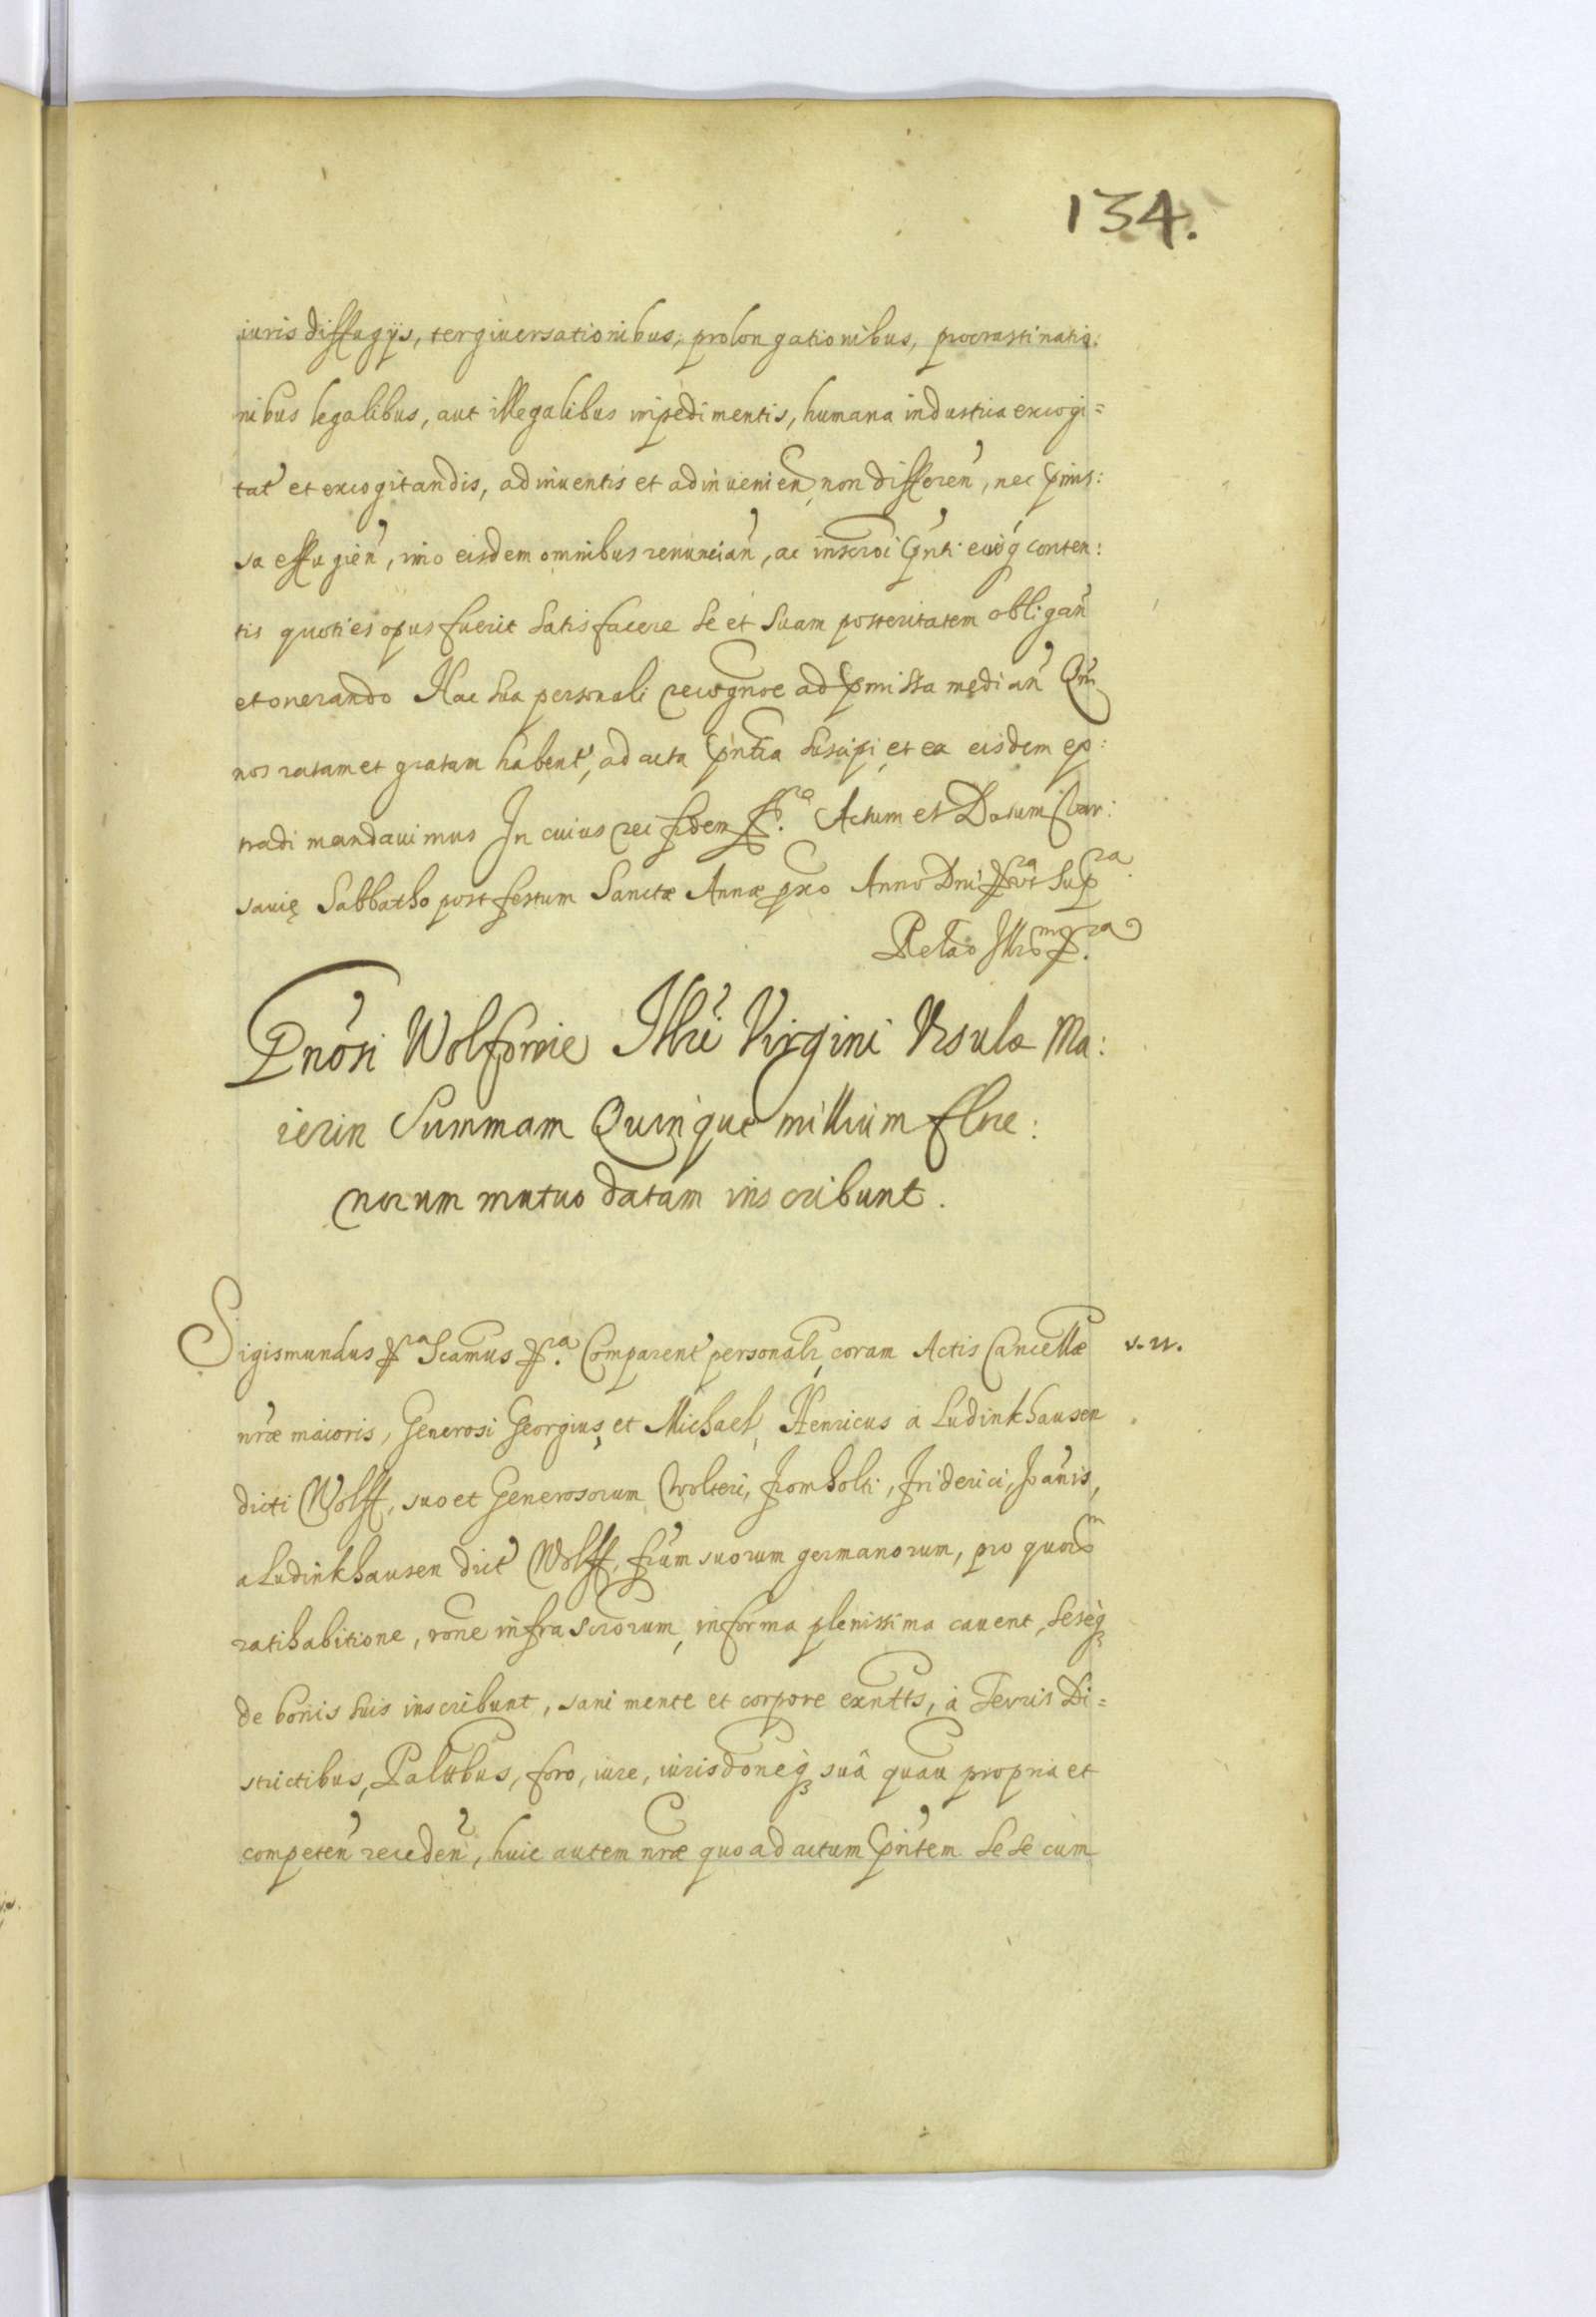 134.
iuris diffugijs, tergiuersationibus, prolongationibus, procrastinatio:
nibus legalibus, aut illegalibus impedimentis, humana industria excogi=
tat' et excogitandis, adinuentis et adinuenien, non differen', nec pmis:
sa effugien', imo eisdem omnibus renuncian', ac inscroi pnti eiusq conten:
tis quoties opus fuerit satisfacere se et suam posteritatem obligan'
et onerando Hac sua personali recognoe ad pmissa median' Qm
nos ratam et gratam habent', ad acta pntia suscipi, et ex eisdem ex:
tradi mandauimus In cuius rei fidem Actum et Datum Var:
sauię Sabbatho post festum Sanctæ Annæ pxo Anno Dni ut sup ra
Gnosi Wolfowie Illri Virgini Vrsulæ Ma:
ierin Summam Quinque millium flore:
norum mutuo datam inscribunt.
Sigismundus Scamus Comparent' personalr, coram Actis Cancellæ
nræ maioris, Generosi Georgius, et Michael, Henricus a Ludinkhausen
dicti Wolff, suo et Generosorum Wolteri, Fromholti, Friderici, Joanis,
a Ludinkhausen dict' Wolff, frum suorum germanorum, pro quorum
ratihabitione, rone infra scrorum, in forma plenissima cauent, seseq
de bonis suis inscribunt, sani mente et corpore exntts, à Terris Di=
strictibus, Palttbus, foro, iure, iurisdoneq suâ quau propria et
competen' receden', huic autem nræ quo ad actum pntem sese cum